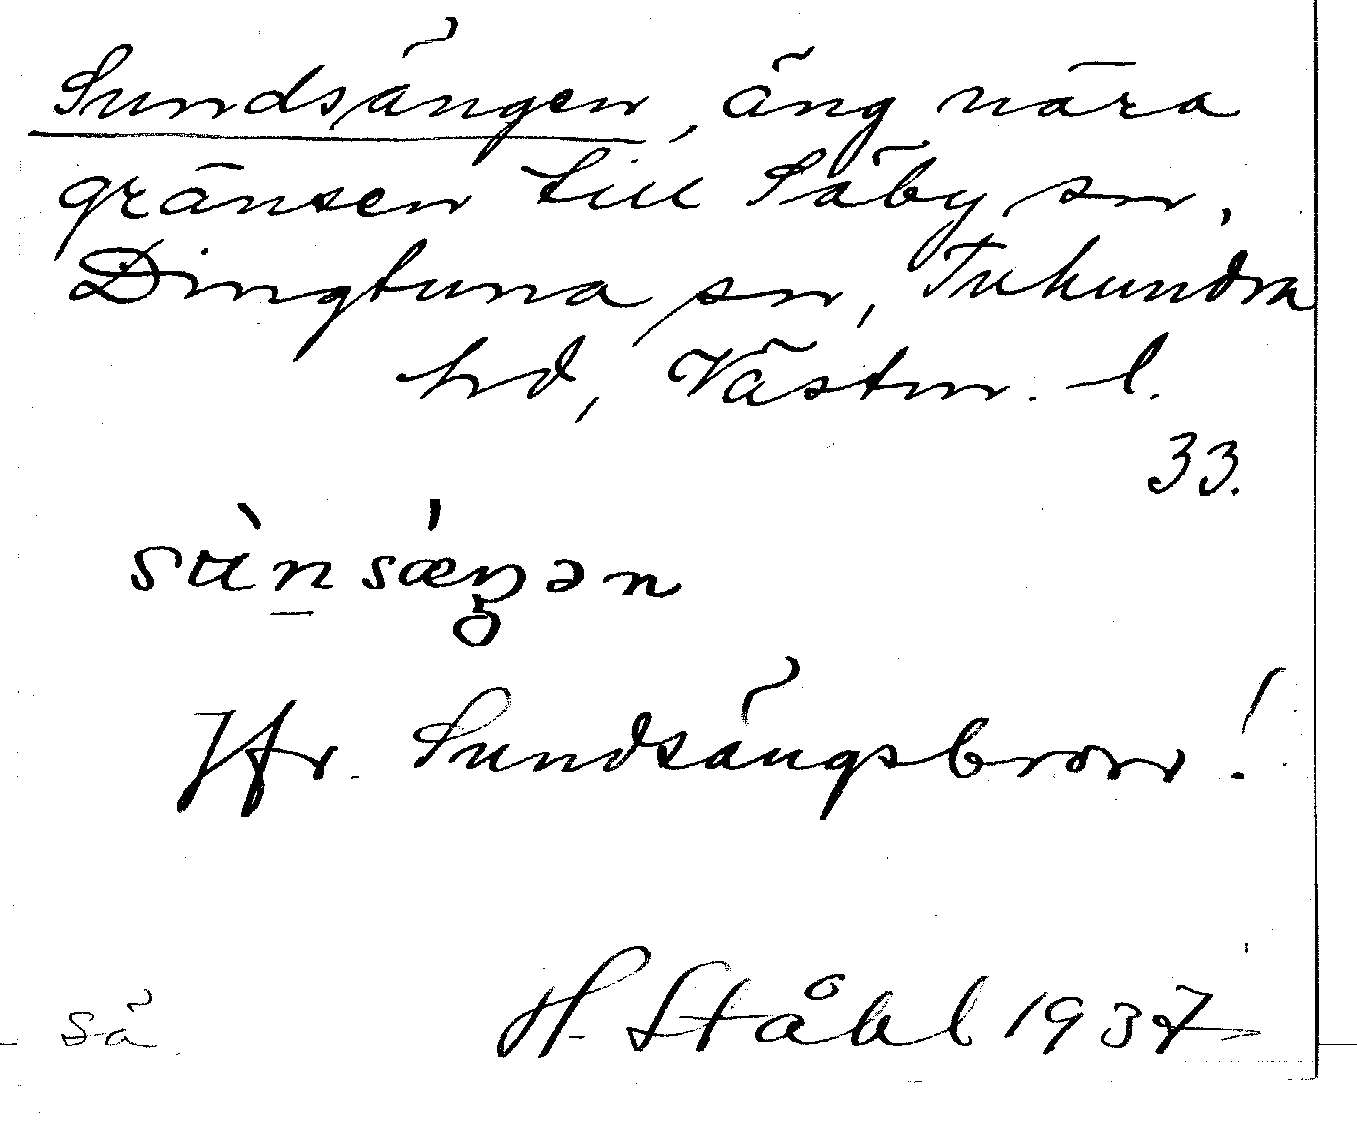 Sundsängen, äng nära
gränsen till Säby sn,
Dingtuna sn, Tuhundra
hd, Västm. l.
33.
Jfr. Sundsängsbron!
H. Ståhl 1937
Sä